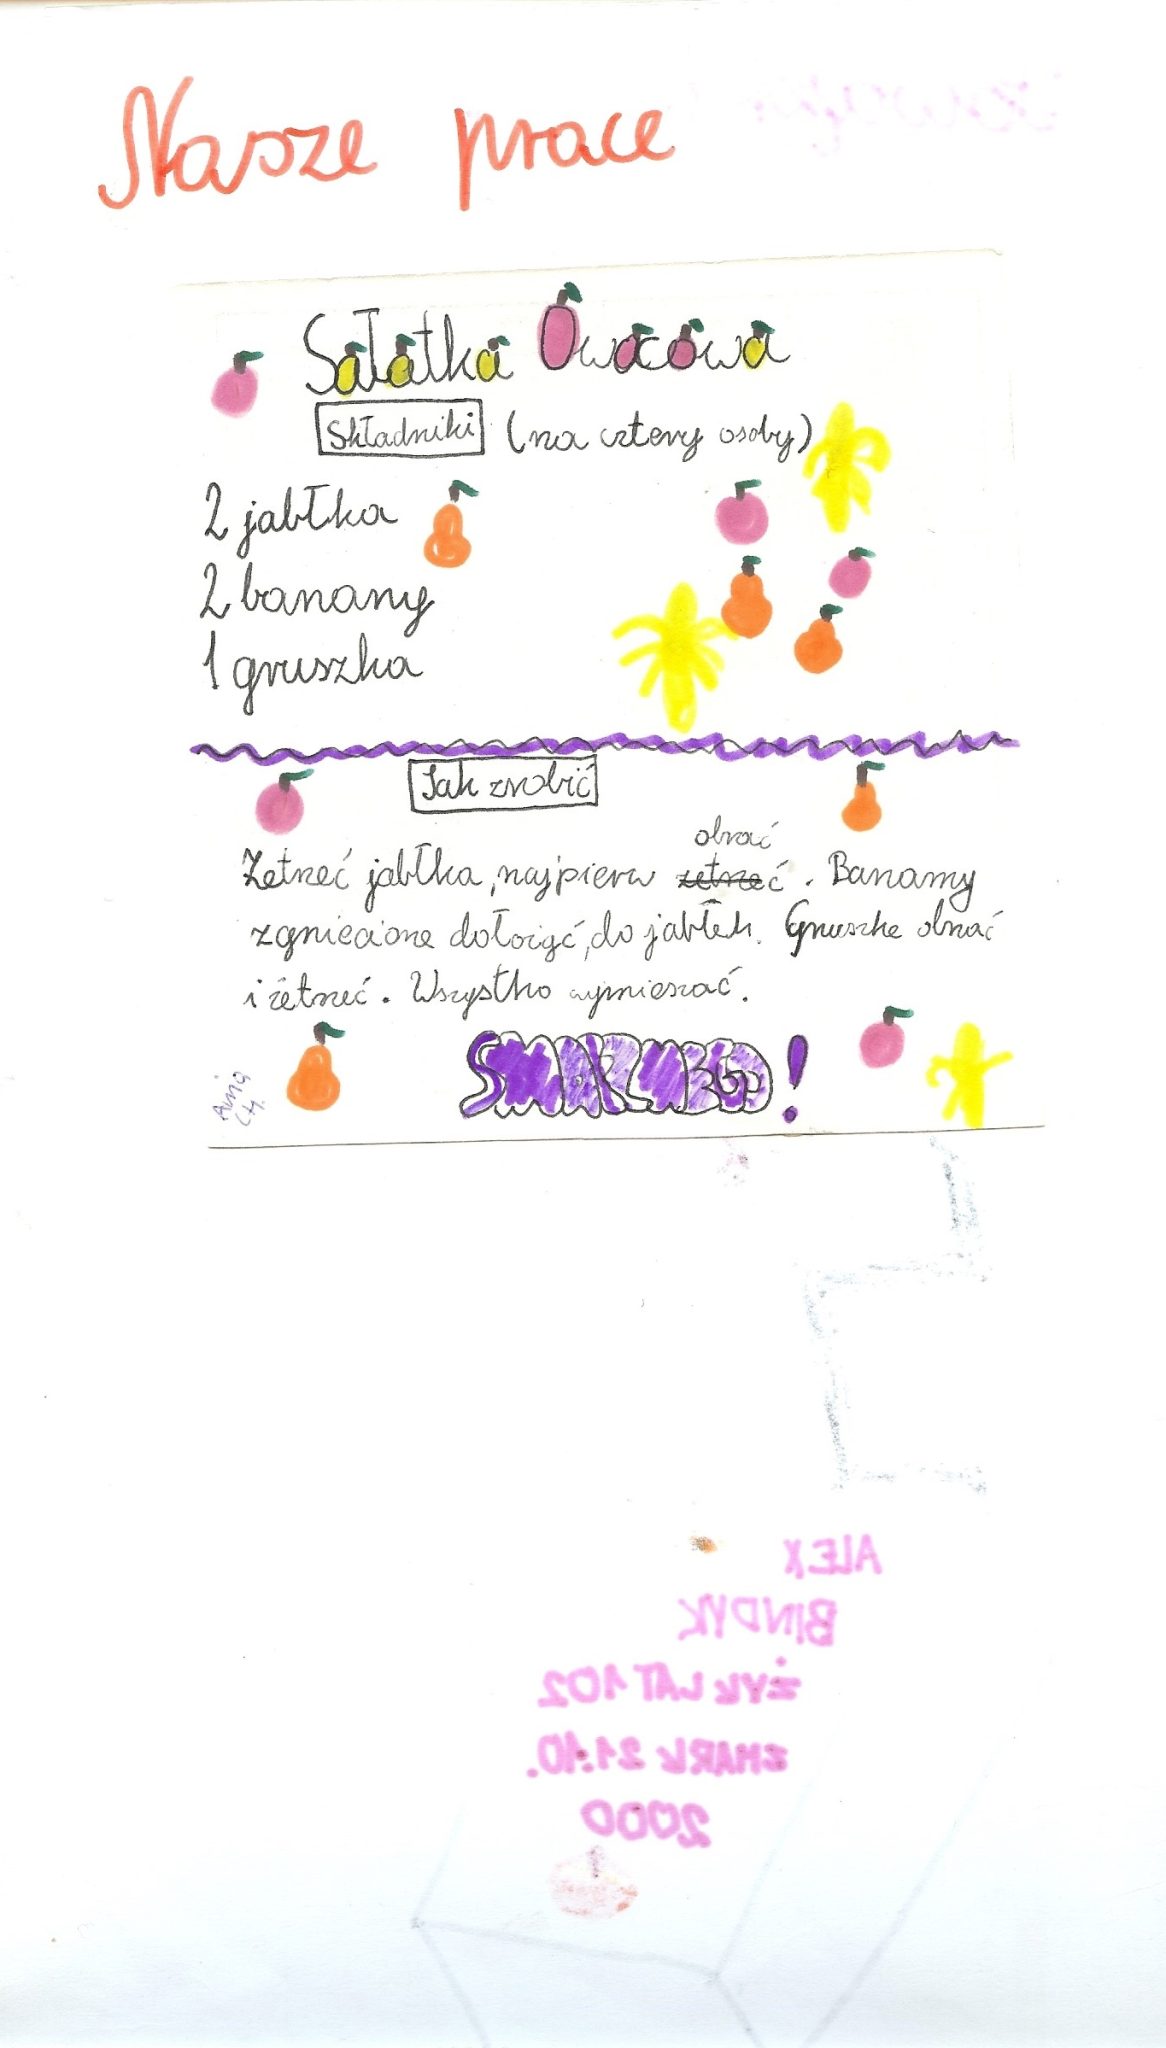 Nasze prace
Sałatka Owocowa
Składniki (na cztery osoby)
2 jabłka
2 banany
1 gruszka
Jak zrobić
obrać
Zetrzeć jabłka, najpierw zetrzeć. Banamy
zgniecione dołorzyć, do jabłek. Gruszke obrać
i zetrzeć. Wszystko wymieszać.
SMACZNEGO!
Ania
CH.
ALEX
BINDYK
ŻYŁ LAT 102
ZMARŁ 21.10.
2000